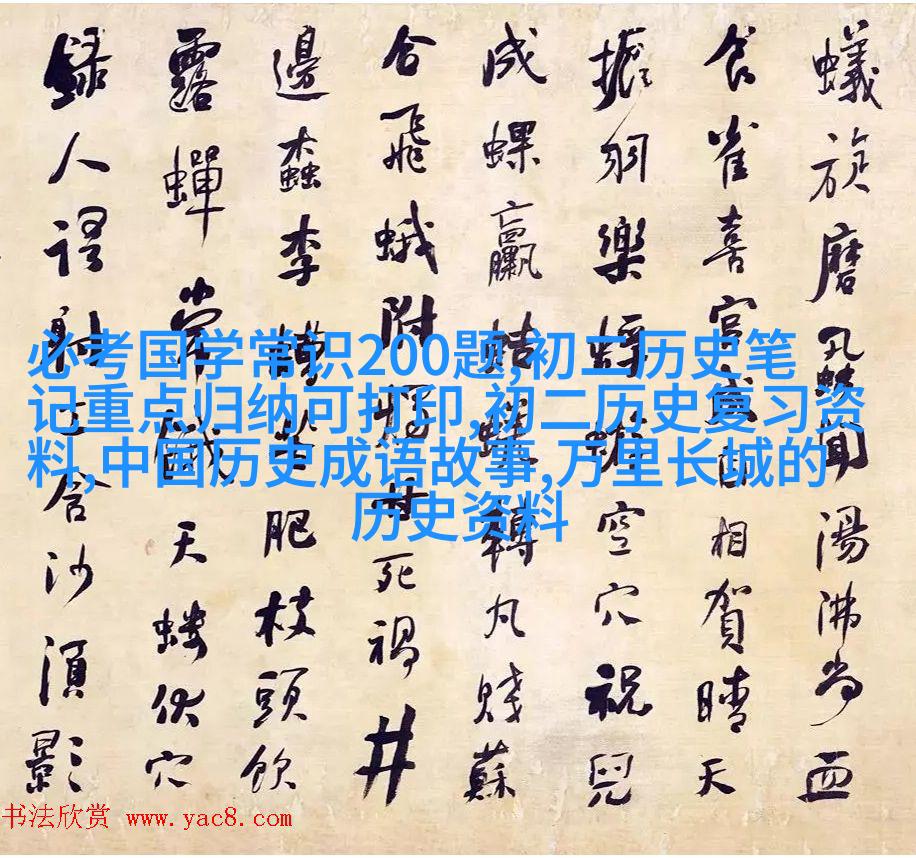 蟻旋磨蝨聞湯沸尚血
食雀喜宮成自相賀晴天
振羽樂蜉蝣空穴祝兒
成蜾蠃蛣蜣轉丸賤蘇
合飛蛾附死禍井
邊蠹李肥枝頭飲
露蟬常天螻伏穴
錄人語射工含沙須影
必考国学常识200题,初二历史笔
记重点归纳可打印,初二历史复习资
料,中国历史成语故事,万里长城的
历史资料
书法欣赏 www.yac8.com